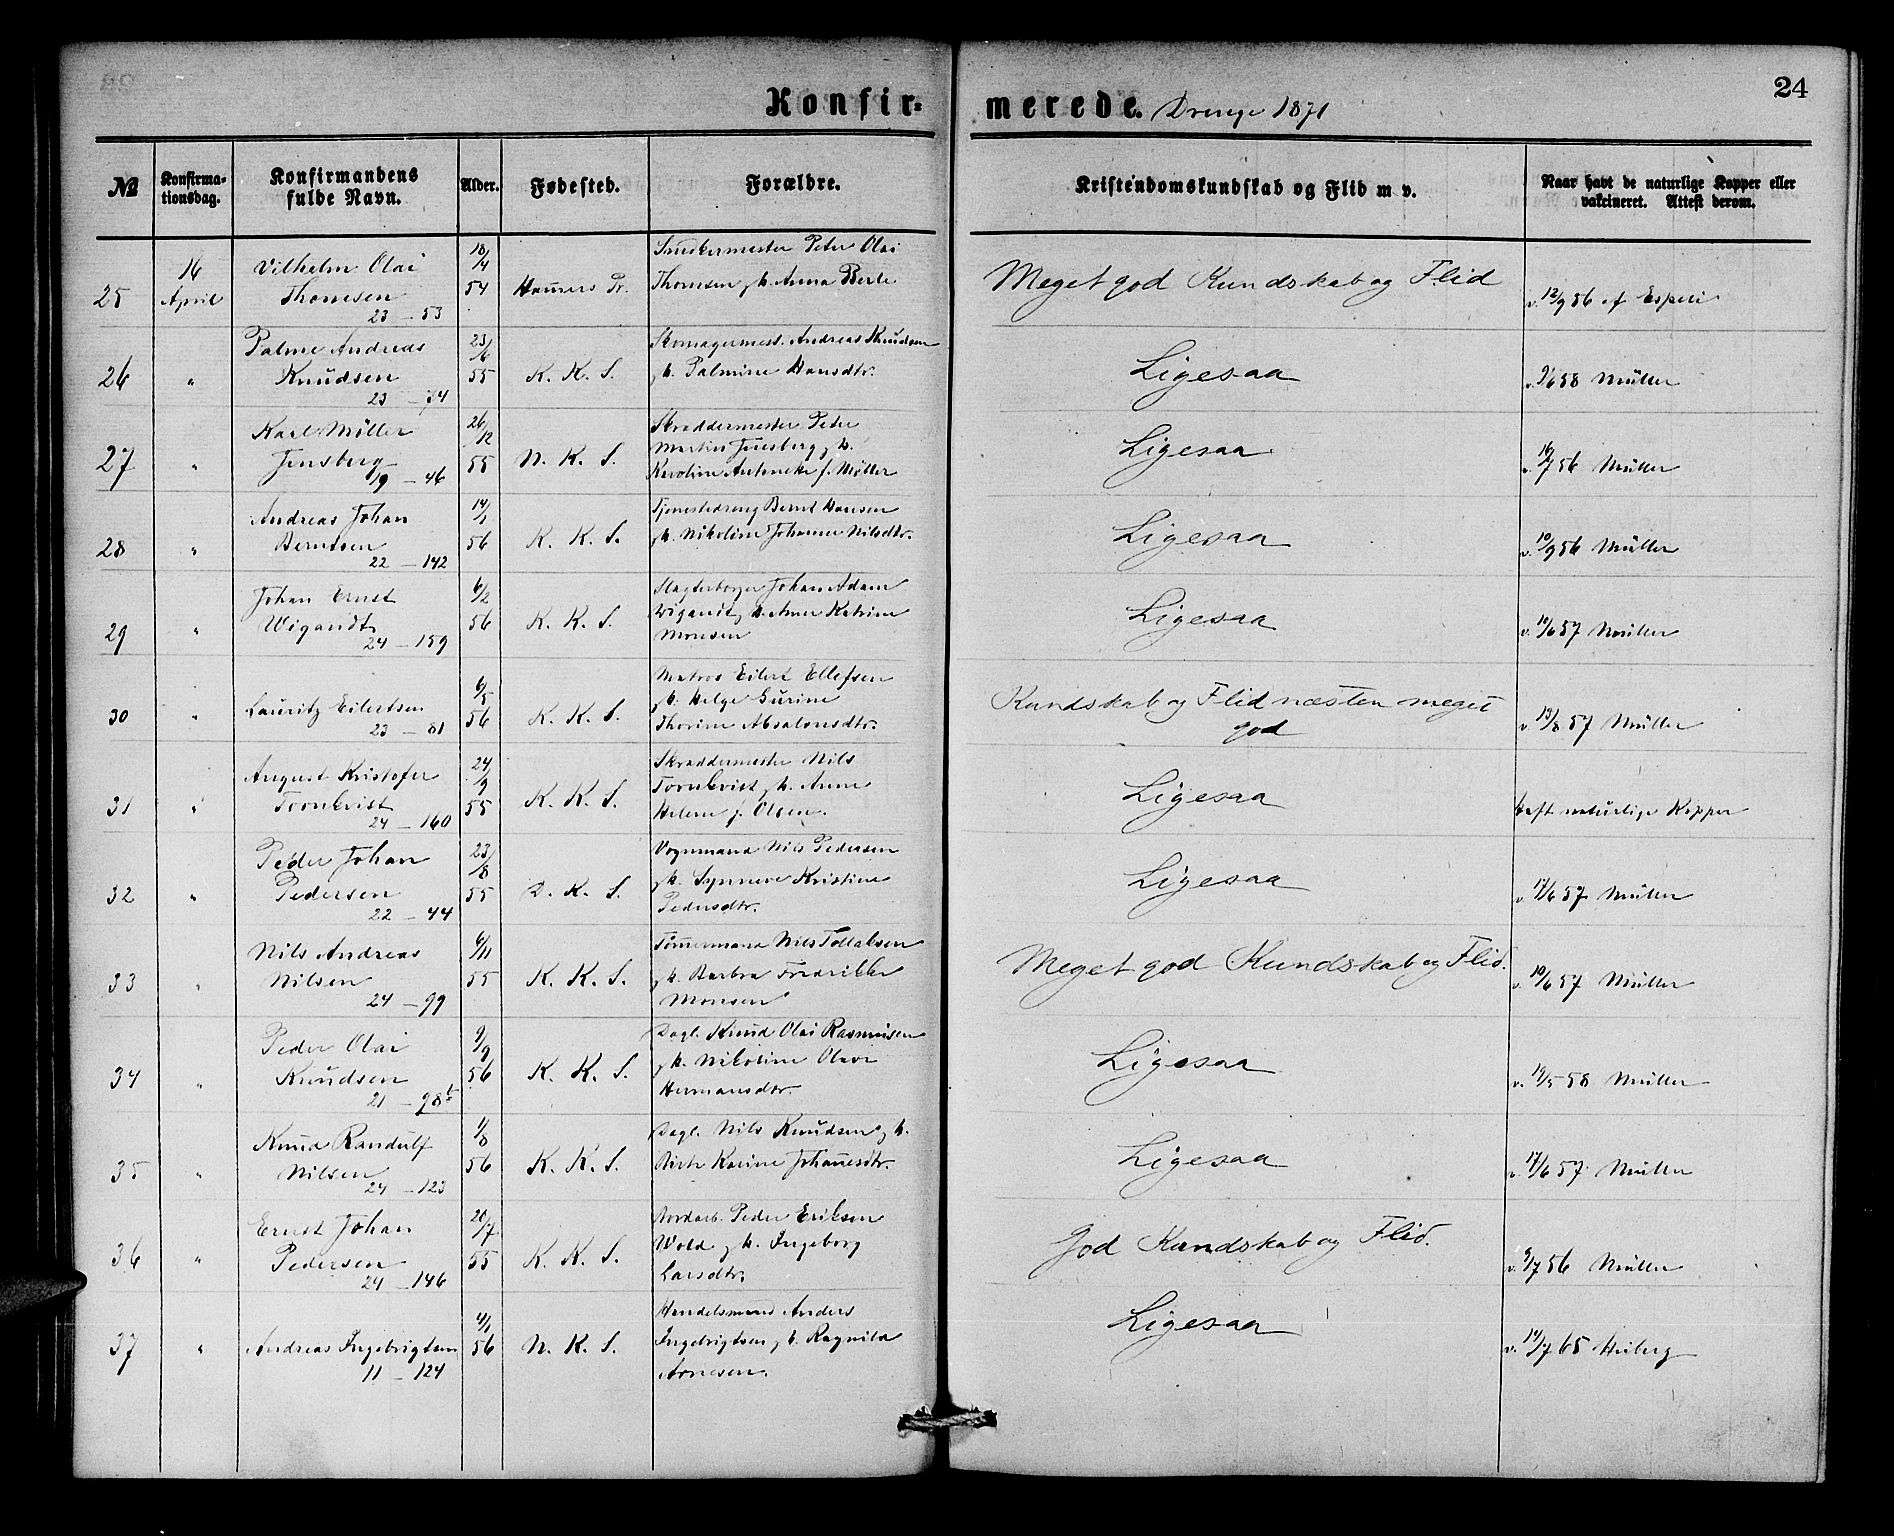 24
Konfirmerede. Drenge 1871
№ Konfirmationsdag. Konfirmandens fulde Navn. Alder. Fødested. Forældre. Kristendomskundskab og Flid m v. Naar havt de naturlige Kopper eller vakcineret. Attest derom.
16 Vilhelm Olai 18/4 Snedkermester Peter Olai
25 April Thomsen 54 Thomsen g h. Anna Berle Meget god Kundskab og Flid v. 12/9 56 af
23 — 53
Palme Andreas 23/6 Skomagermest. Andreas Knudsen
26 " Knudsen 55 K. K. S. g h. Palmine Hansdtr. Ligesaa v. 9/6 58 Müller
23 — 74
Karl Møller 26/12 Skræddermester Peter
27 " Jensberg 55 N. K. S. Martin Jensberg g h. Ligesaa v. 16/7 56 Müller
19 — 46 Karoline Antoneke f. Møller
Andreas Johan 14/1 Tjenestedreng Bernt Hansen
28 " Berntsen 56 K. K. S. g h. Nikoline Johanne Nilsdtr. Ligesaa v. 10/9 56 Müller
22 — 142
Johan Ernst 6/2 Slagterborger Johan Adam
29 " Wigandt 56 K. K. S. Wigandt g h. Anne Katrine Ligesaa v. 10/6 57 Müller
24 — 159 Monsen
6/5 Matros Eilert Ellefsen
30 " Lauritz Eilertsen 56 K. K. S. g h. Helge Gurine Kundskab og Flid næsten meget god v. 13/8 57 Müller
23 — 81 Thorine Absalonsdtr.
August Kristofer 24/9 Skræddermester Nils
31 " Tornkvist 55 K. K. S. Tornkvist g h. Anne Ligesaa haft naturlige Kopper
24 — 160 Helene f. Olsen.
Peder Johan 23/8 Vognmand Nils Pedersen
32 " Pedersen 55 D. K. S. g h. Synneve Kristine Ligesaa v. 17/6 57 Müller
22 — 44 Pedersdtr.
Nils Andreas 6/11 Tømermand Nils Tollaksen
33 " Nilsen 55 K. K. S. g h. Barbra Fredrikke Meget god Kundskab og Flid. v. 10/6 57 Müller
24 — 99 Monsen
Peder Olai 9/9 Dagl. Knud Olai Rasmusen
34 " Knudsen 56 K. K. S. g h. Nikoline Olave Ligesaa v. 19/5 58 Müller
21 — 98 b Hermansdtr.
Knud Randulf 1/8 Dagl. Nils Knudsen g h.
35 " Nilsen 56 K. K. S. Birte Karine Johanesdtr. Ligesaa v. 17/6 57 Müller
24 — 123
Ernst Johan 20/7 Peder Eriksen
36 " Pedersen 55 K. K. S. Wold g h. Ingeborg God Kundskab og Flid. v. 9/7 56 Müller
24 — 146 Larsdtr.
4/1 Handelsmand Anders
37 " Andreas Ingebrigtsen 56 N. K. S. Ingebrigtsen g h. Ragnild Ligesaa v. 14/7 65 Heiberg
11 — 124 Arnesen.